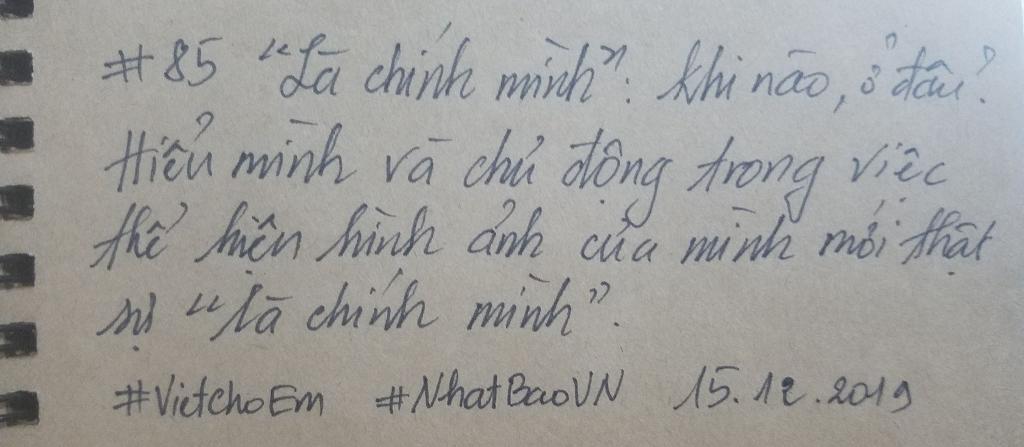 #85 "Là chính mình": khi nào, ở đâu?
Hiểu mình và chủ động trong việc
thể hiện hình ảnh của mình mới thật
sự "là chính mình".
#VietchoEm #NhatBaoVN 15.12.2019